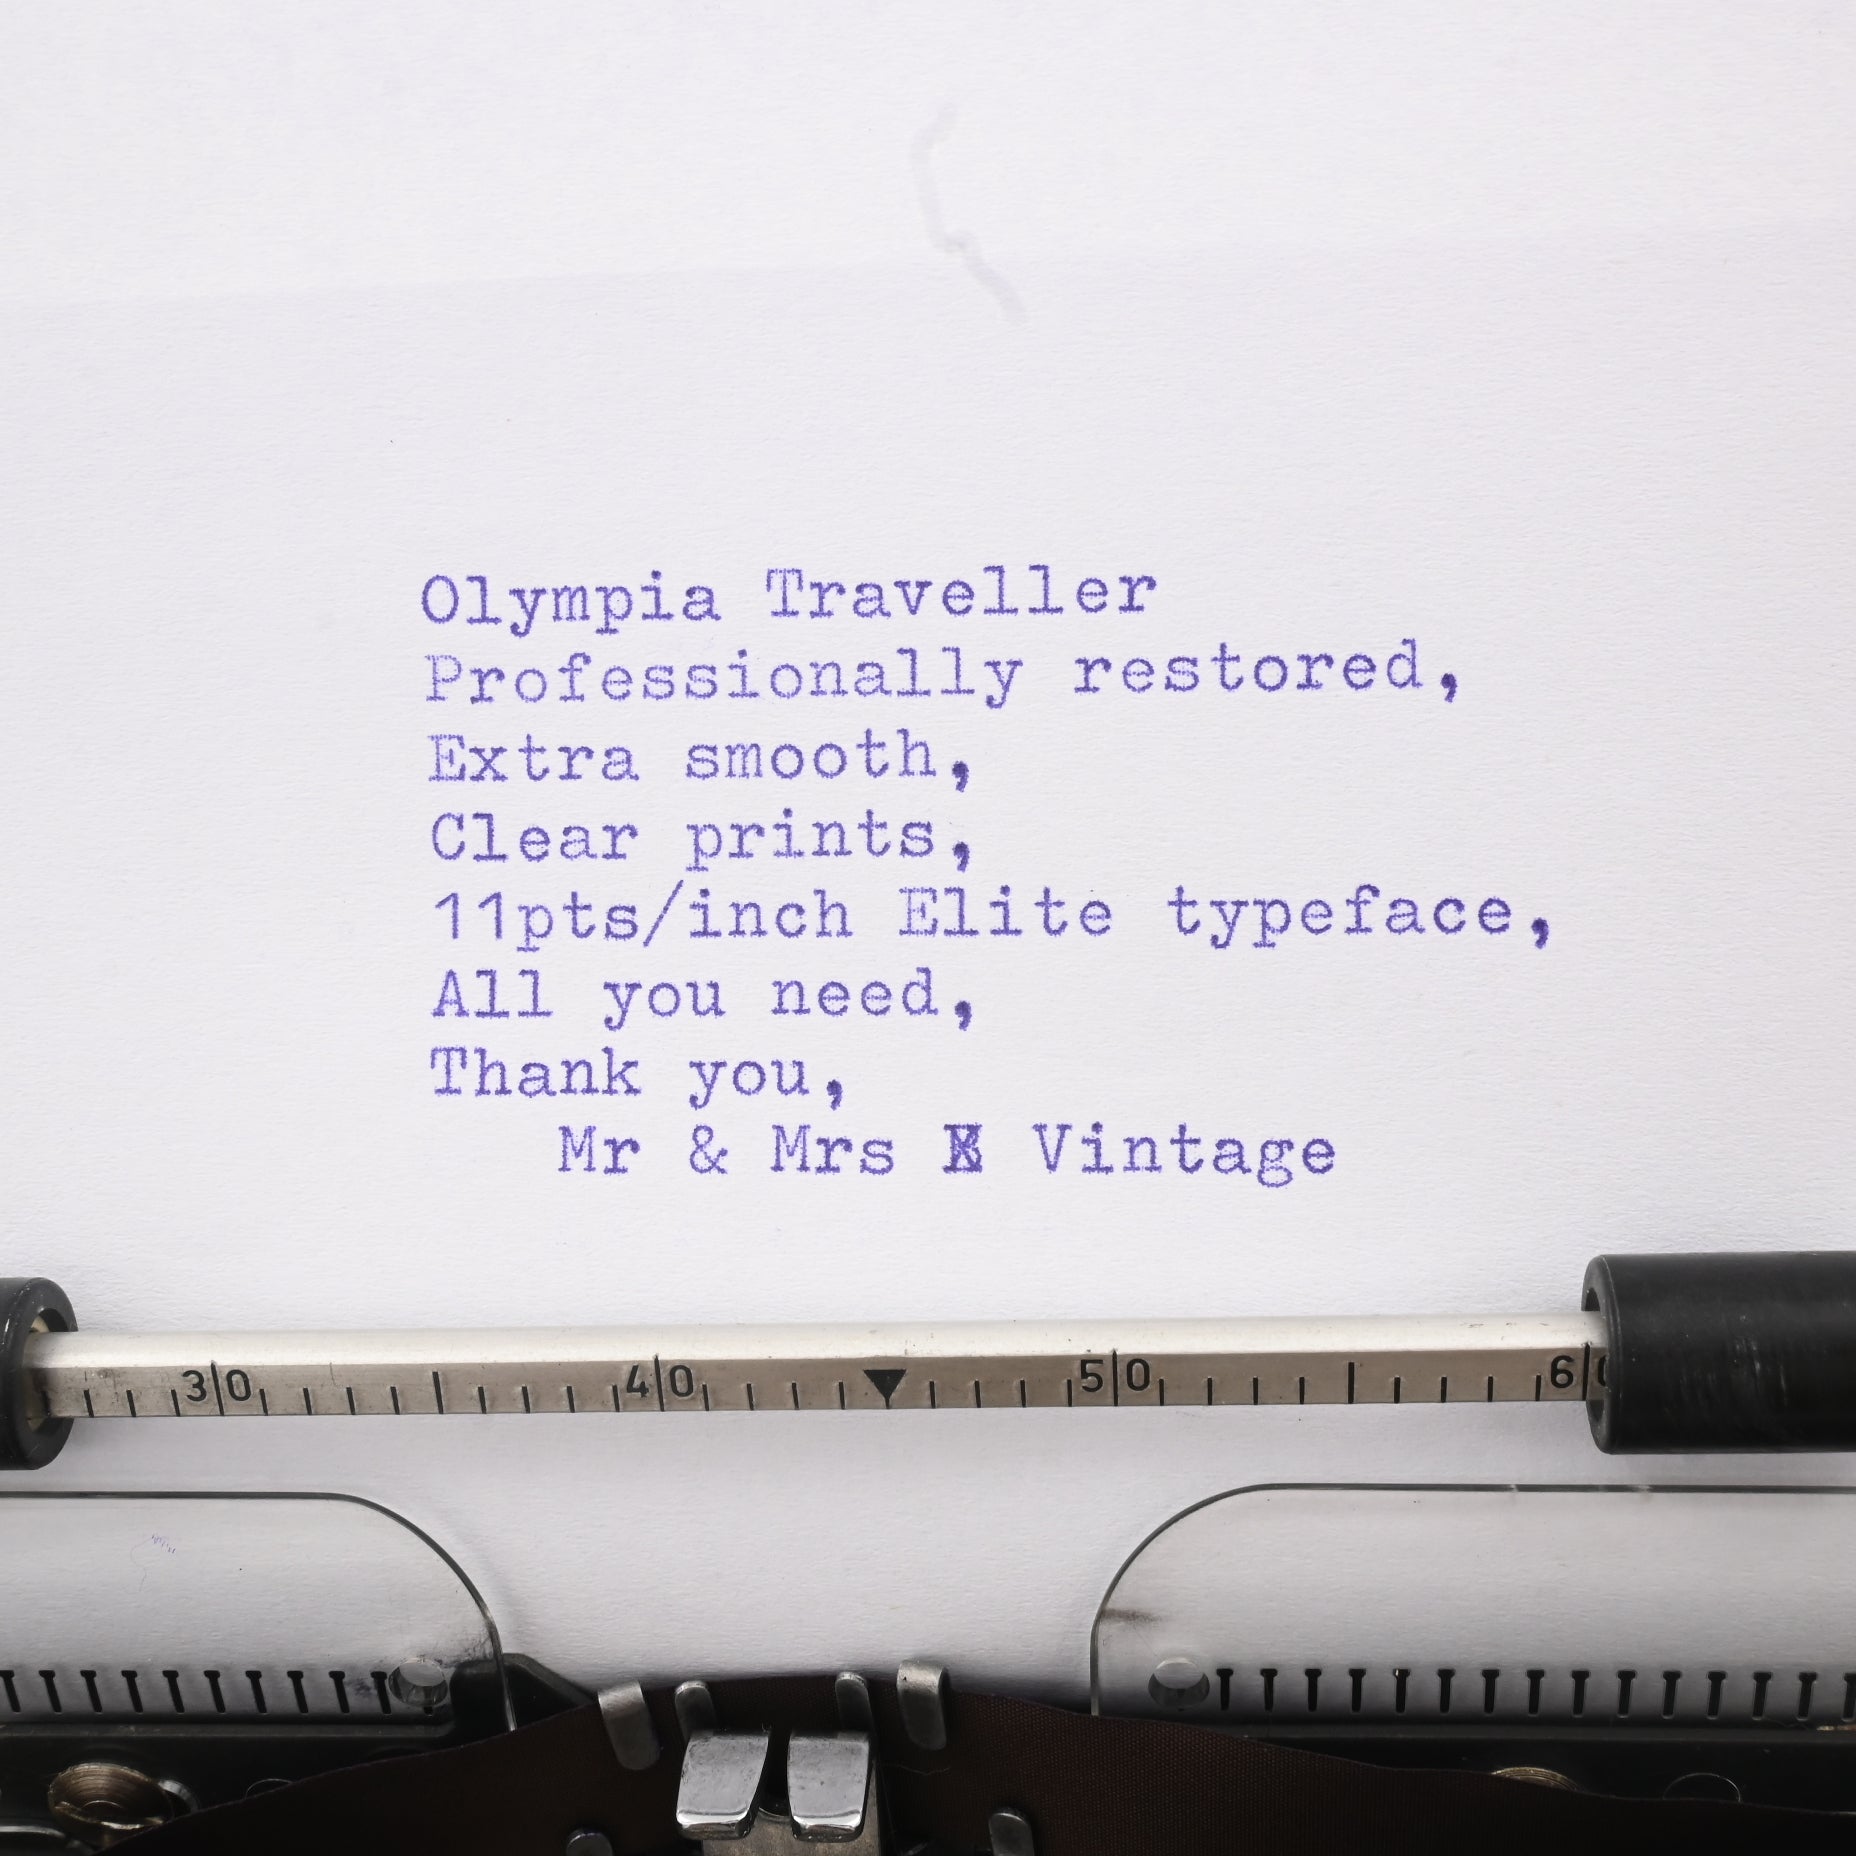 Olympia Traveller
Professionally restored,
Extra smooth,
Clear prints,
11pts/inch Elite typeface,
All you need,
Thank you,
Mr & Mrs Vintage
30 40 50 60